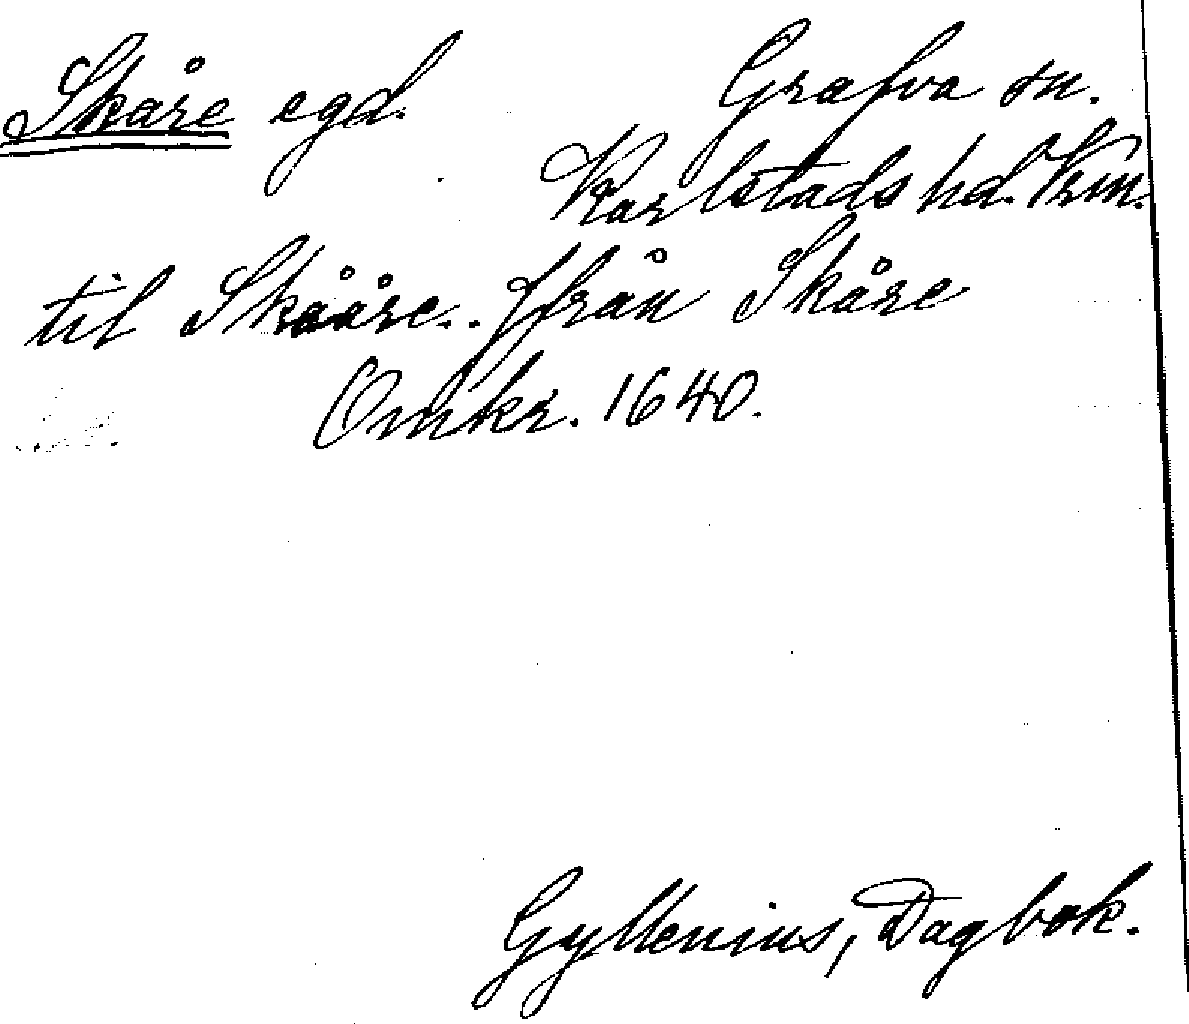 Skåre egd. Grafva sn.
Karlstads hd. Vrm.
til Skååre.. Ifrån Skåre
Omkr. 1640.
Gyllenius, Dagbok.